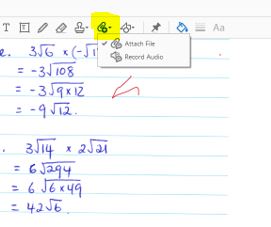 T T Aa
Attach File
Record Audio
e. 3√6 × (-√1
= -3√108
= -3√9×12
= -9√12.
. 3√14 × 2√21
= 6√294
= 6√6×49
= 42√6.